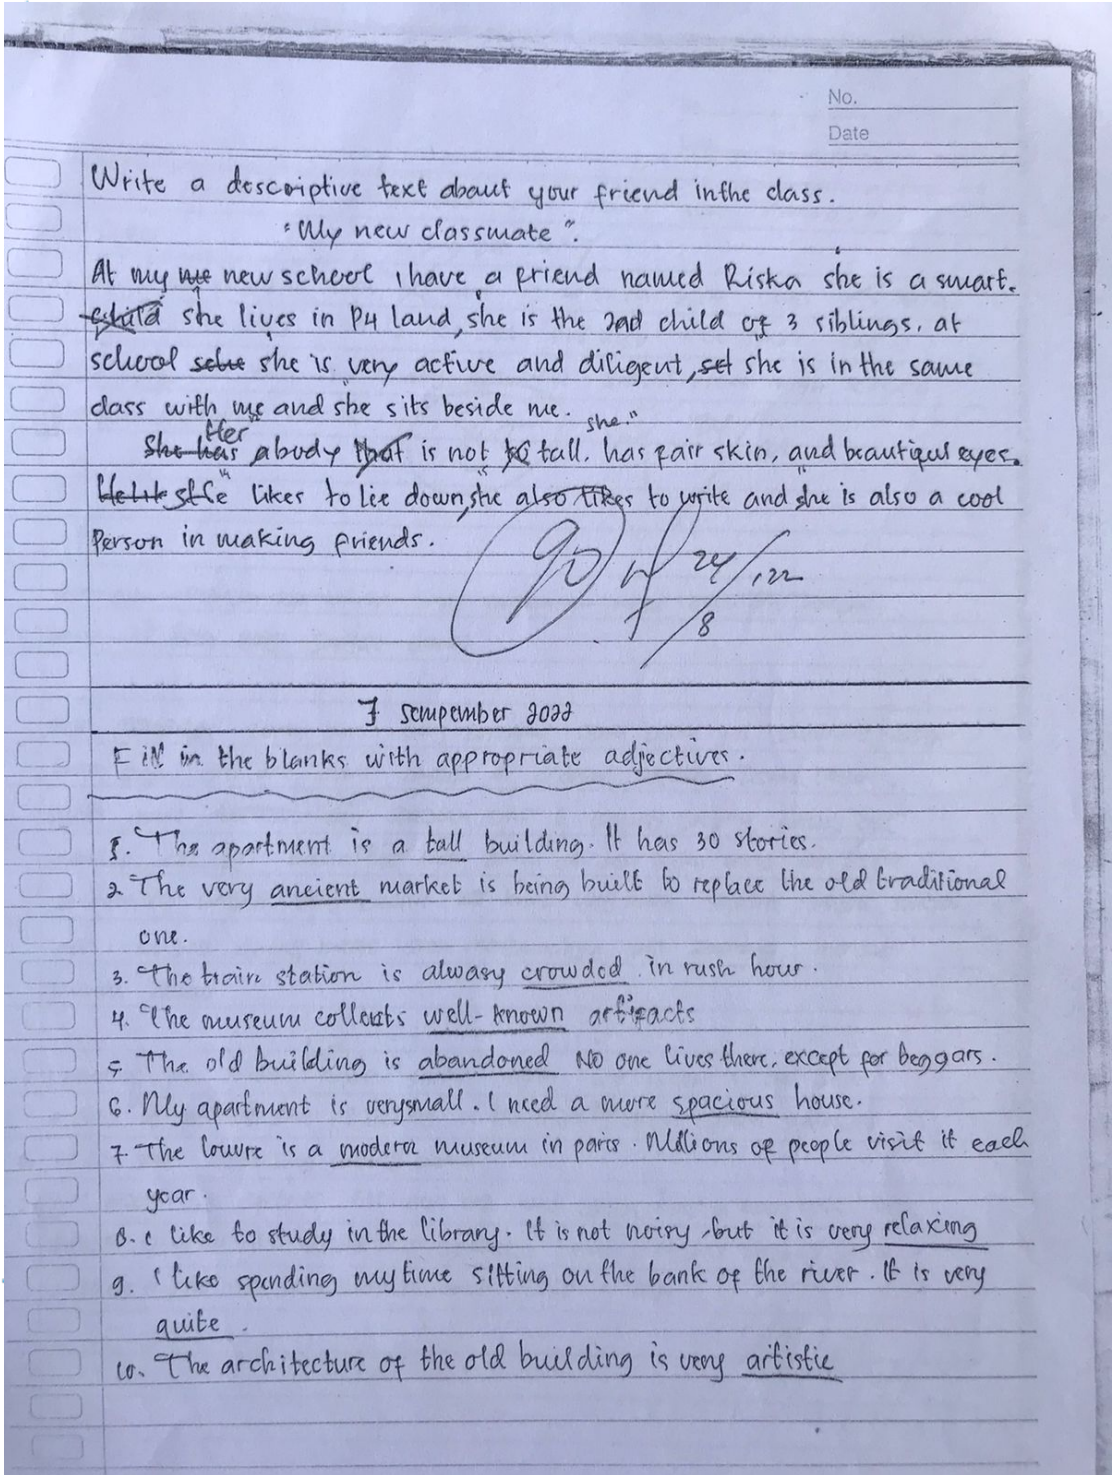 No.
Date
Write a descriptive text about your friend inthe class.
"My new classmate".
At my new school i have a friend named Riska she is a smart.
she lives in P4 land, she is the 2nd child of 3 siblings, at
school she is very active and diligent, she is in the same
class with me and she sits beside me.
Her she."
abody is not tall. has fair skin, and beautiful eyes.
likes to lie down, she also likes to write and she is also a cool
Person in making friends.
90 24/8/22
7 sempember 2022
Fill in the blanks with appropriate adjectives.
1. The apartment is a tall building. It has 30 stories.
2. The very ancient market is being built to replace the old traditional
one.
3. The train station is alwasy crowded in rush hour.
4. The museum collects well-known artifacts
5. The old building is abandoned No one lives there, except for beggars.
6. My apartment is verysmall. I need a more spacious house.
7. The louvre is a modern museum in paris. Millions of people visit it each
year.
8. i like to study in the library. It is not noisy, but it is very relaxing
9. I like spending my time sitting on the bank of the river. It is very
quite.
10. The architecture of the old building is very artistic